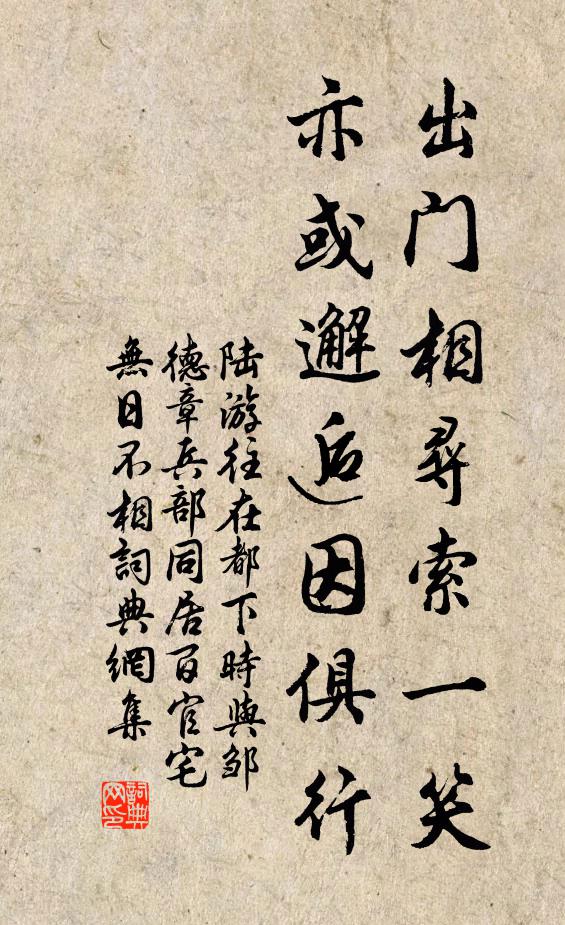 出门相尋索一笑
亦或邂逅因俱行
陆游往在都下時與邹
德章兵部同居百官宅
無日不相詞典網集
詞典网印